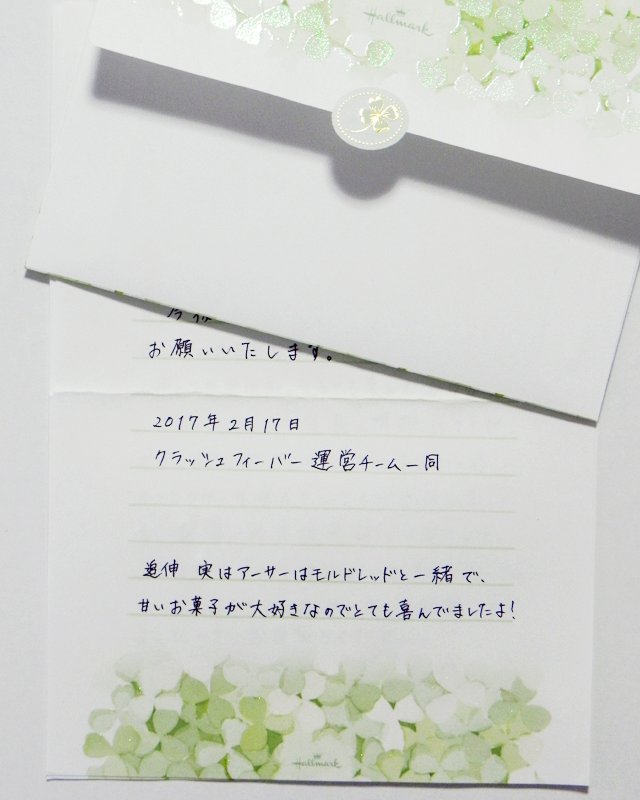 Hallmark
お願いいたします。
2017年2月17日
クラッシュフィーバー運営チーム一同
追伸 実はアーサーはモルドレッドと一緒で、
甘いお菓子が大好きなのでとても喜んでましたよ!
Hallmark